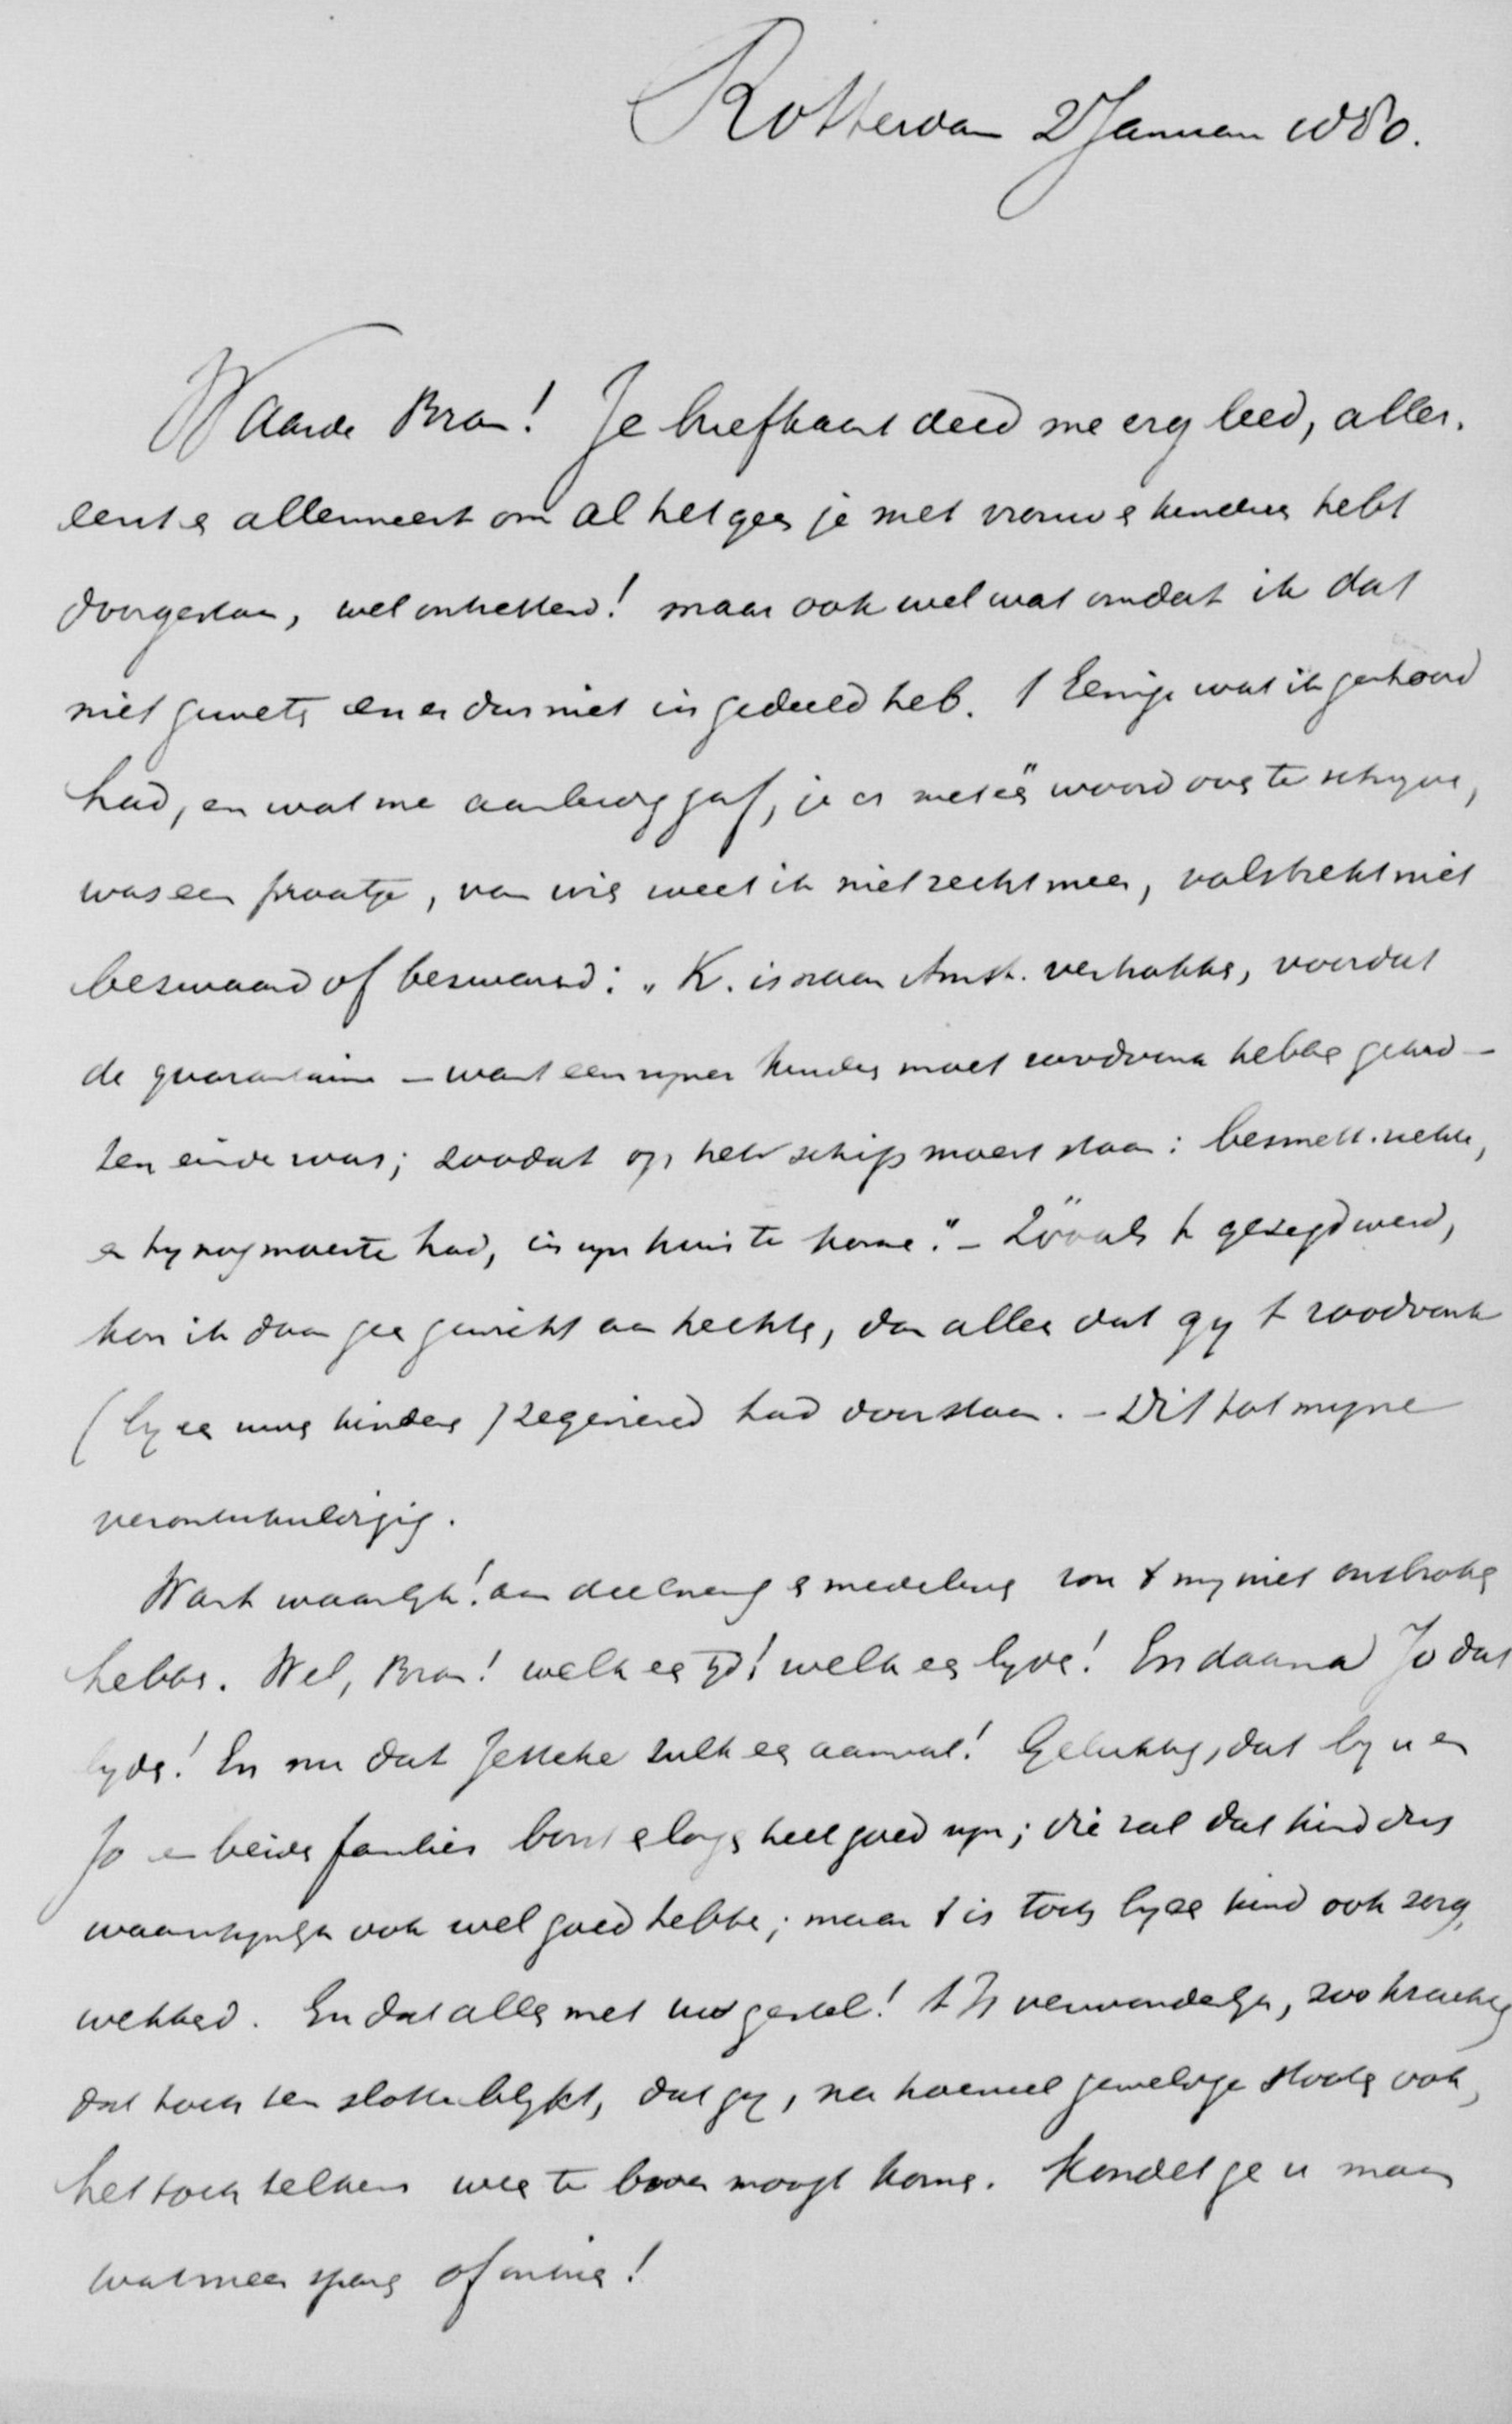 Rotterdam 2 Januari 1880.
Waarde Bram! Je briefkaart deed me erg leed, aller-
eerst en allermeest om al hetgeen je met vrouw en kinderen hebt
doorgestaan, wel ontzettend! maar ook wel wat omdat ik dat
niet geweten en er dus niet in gedeeld heb. 't Eenige wat ik gehoord
had, en wat me aanleiding gaf, je er met een woord over te schrijven,
was een praatje, van wie weet ik niet recht meer, volstrekt niet
bezwaard of bezwarend: „K. is naar Amst. vertrokken, voordat
de quarantaine – want een zijner kinderen moet roodvonk hebben gehad –
ten einde was; zoodat op het schip moest staan: besmett. ziekte,
en hij nog moeite had, in zijn huis te komen." – Zooals 't gezegd werd,
kon ik daar geen gewicht aan hechten, dan alleen dat gij 't roodvonk
(bij een uwer kinderen) zegevierend had doorstaan. – Dit tot mijne
verontschuldiging.
Want waarlijk! aan deelneming en mededeling zou 't mij niet ontbroken
hebben. Wel, Bram! welk een tijd! welk een lijden! En daarna Jo dat
lijden! En nu dat Jetteke zulk een aanval! Gelukkig, dat bij u en
Jo en beide families borst en longen heel goed zijn; die zal dat kind dus
waarschijnlijk ook wel goed hebben; maar 't is toch bij een kind ook zorg-
wekkend. En dat alles met uw gestel! 't Is verwonderlijk, zoo krachtig
dat toch ten slotte blijkt, dat gij, na hoeveel geweldige stooten ook,
het toch telkens weer te boven moogt komen. Kondet ge u maar
wat meer sparen of ontzien!